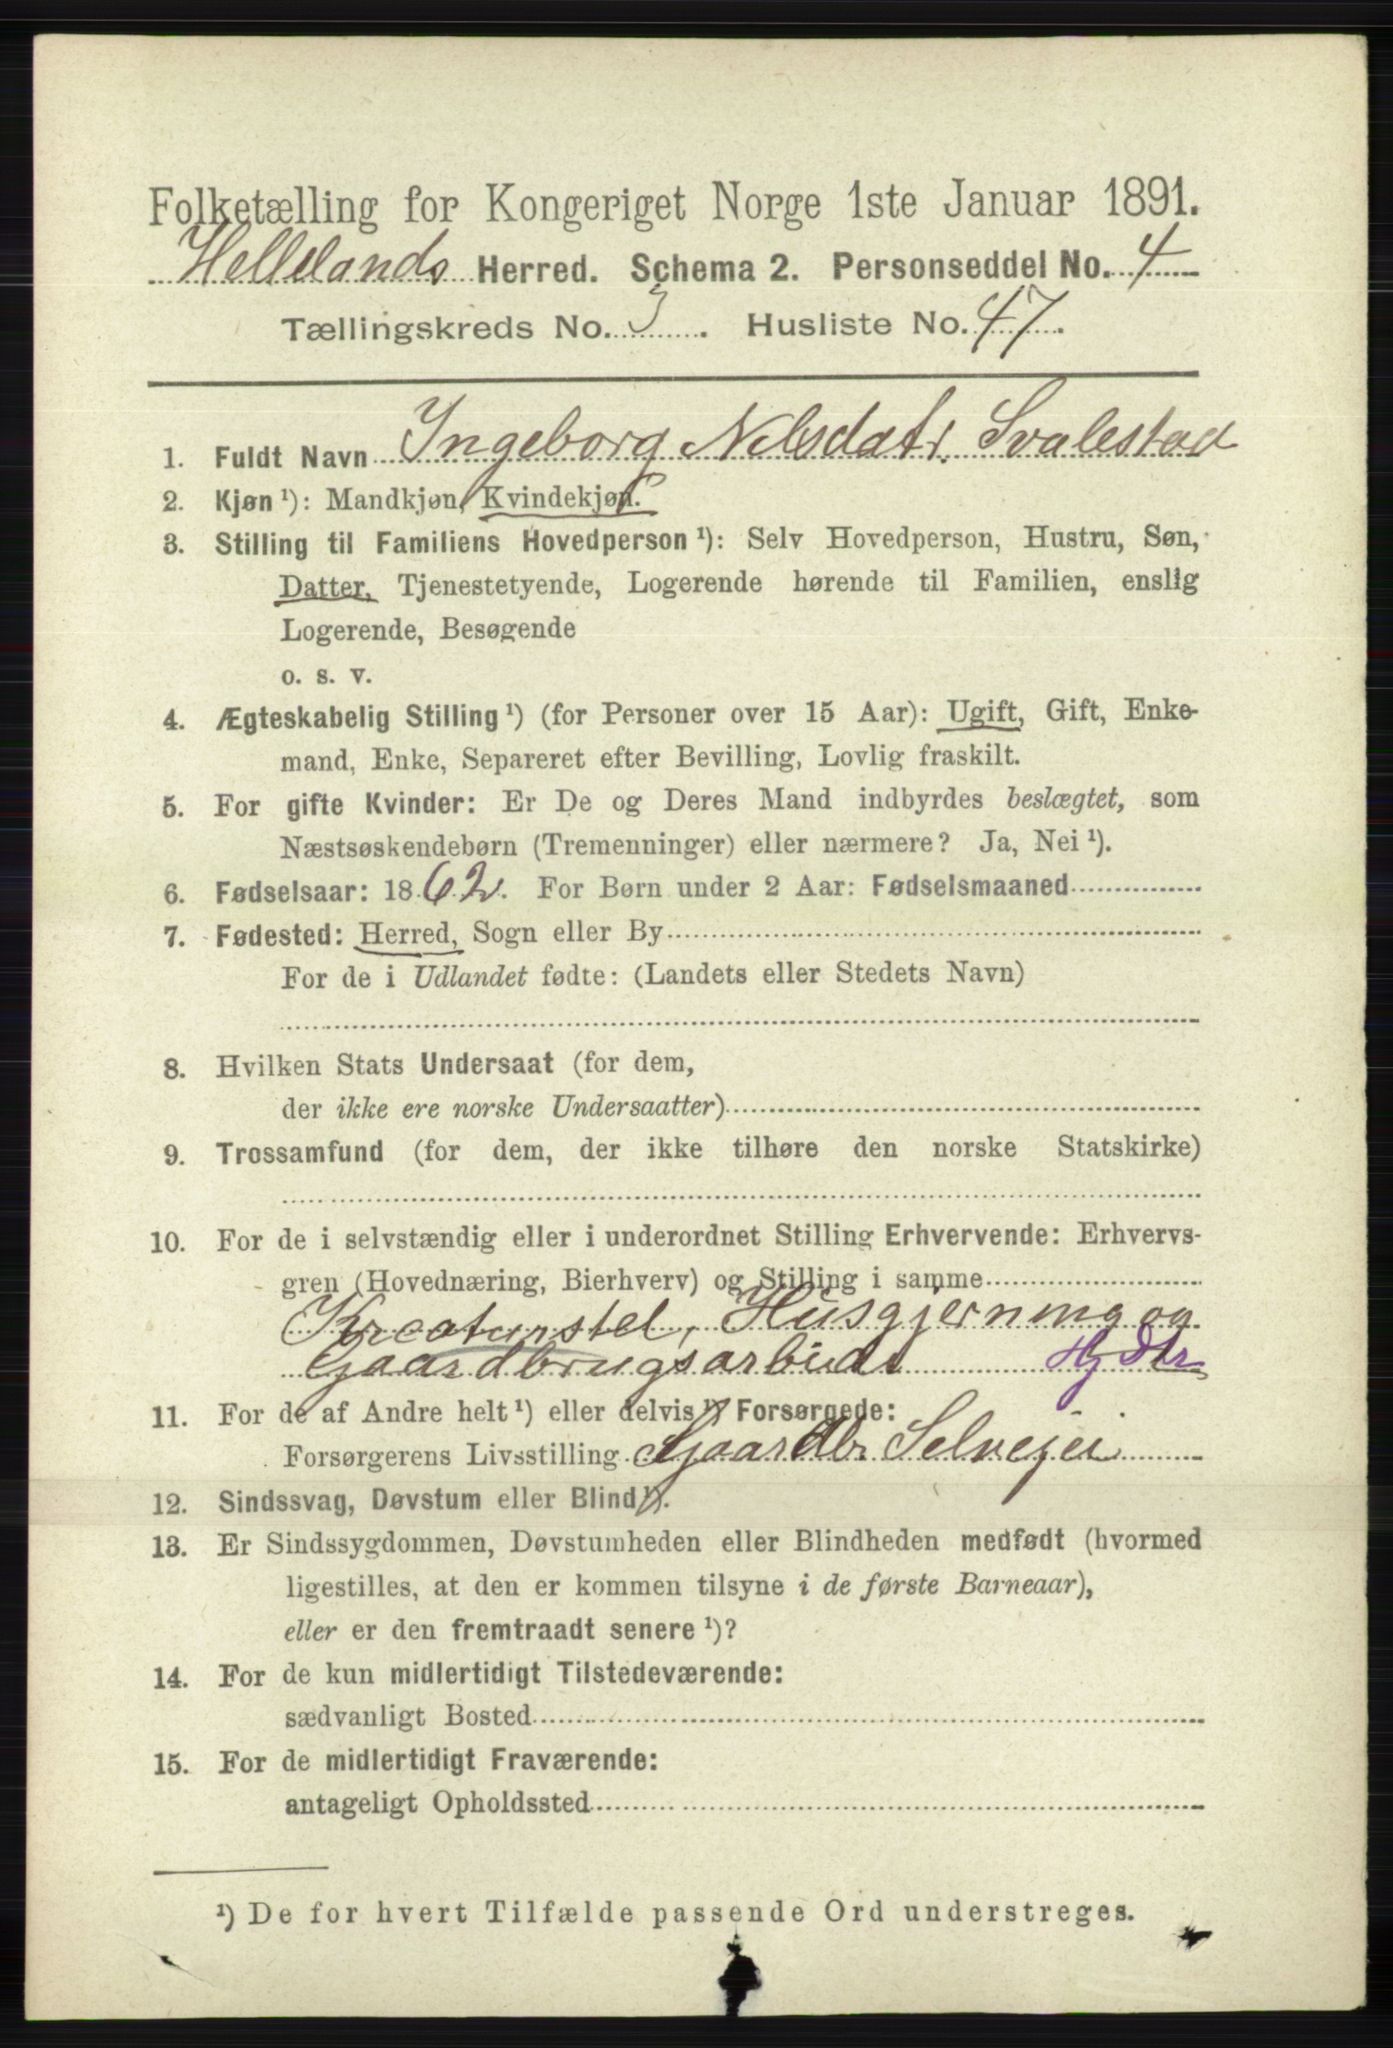 Folketælling for Kongeriget Norge 1ste Januar 1891.
Hellelands Herred. Schema 2. Personseddel No. 4
Tællingskreds No. 3. Husliste No. 47.
1. Fuldt Navn Ingeborg Nilsdatr. Svalestad
2. Kjøn ¹): Mandkjøn, Kvindekjøn.
3. Stilling til Familiens Hovedperson ¹): Selv Hovedperson, Hustru, Søn,
Datter, Tjenestetyende, Logerende hørende til Familien, enslig
Logerende, Besøgende
o. s. v.
4. Ægteskabelig Stilling ¹) (for Personer over 15 Aar): Ugift, Gift, Enke-
mand, Enke, Separeret efter Bevilling, Lovlig fraskilt.
5. For gifte Kvinder: Er De og Deres Mand indbyrdes beslægtet, som
Næstsøskendebørn (Tremenninger) eller nærmere? Ja, Nei ¹).
6. Fødselsaar: 1862. For Børn under 2 Aar: Fødselsmaaned
7. Fødested: Herred, Sogn eller By
For de i Udlandet fødte: (Landets eller Stedets Navn)
8. Hvilken Stats Undersaat (for dem,
der ikke ere norske Undersaatter)
9. Trossamfund (for dem, der ikke tilhøre den norske Statskirke)
10. For de i selvstændig eller i underordnet Stilling Erhvervende: Erhvervs-
gren (Hovednæring, Bierhverv) og Stilling i samme
Kreaturstel, Husgjerning og
Gaardbrugsarbeide Hj Dtr
11. For de af Andre helt ¹) eller delvis ¹) Forsørgede:
Forsørgerens Livsstilling Gaardbr. Selvejer
12. Sindssvag, Døvstum eller Blind ¹).
13. Er Sindssygdommen, Døvstumheden eller Blindheden medfødt (hvormed
ligestilles, at den er kommen tilsyne i de første Barneaar),
eller er den fremtraadt senere ¹)?
14. For de kun midlertidigt Tilstedeværende:
sædvanligt Bosted
15. For de midlertidigt Fraværende:
antageligt Opholdssted
¹) De for hvert Tilfælde passende Ord understreges.